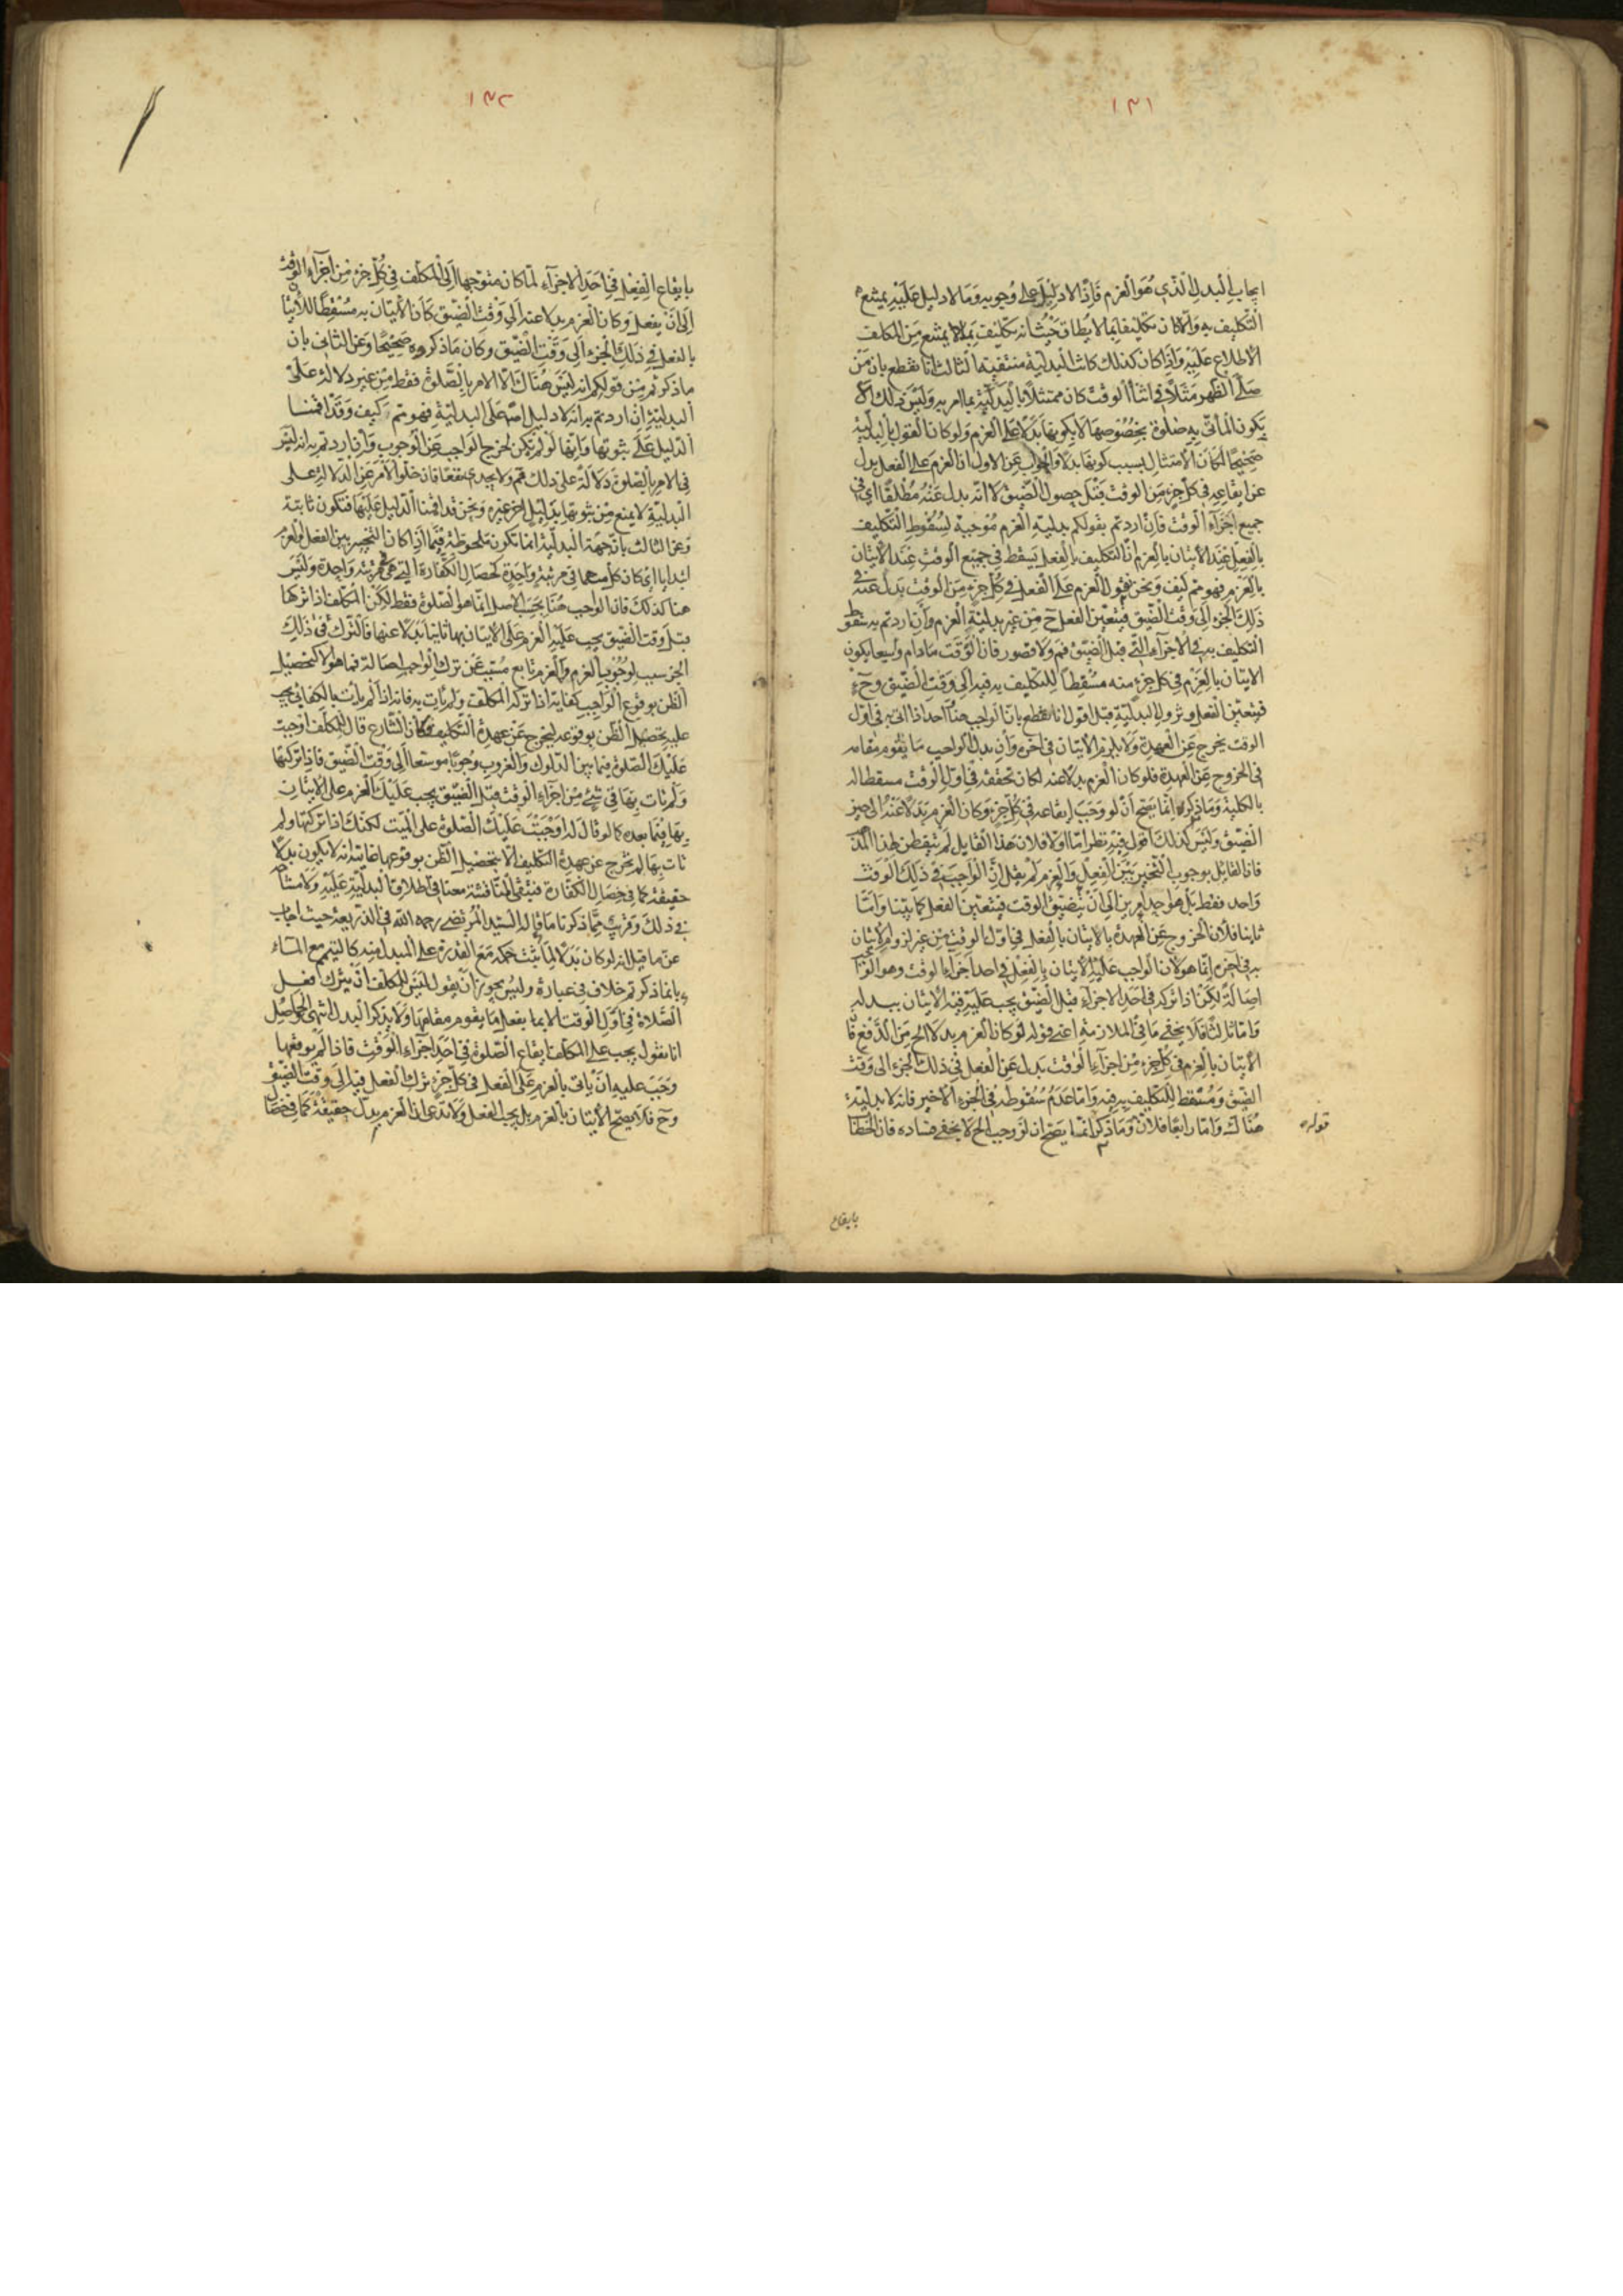 ١٣١
ايجاب البدل الذي هو العزم فاذا لا دليل على وجوبه وما لا دليل عليه يمتنع
التكليف به والا كان تكليفا بما لا يطاق حيث انه تكليف بما لا يمتنع من المكلف
الاطلاع عليه واذا كان كذلك كانت البدلية منتفية الثالث انا نقطع بان من
صلى الظهر مثلا في اثناء الوقت كان ممتثلا بالبدلية بما امر به وليس ذلك الا
يكون المأتي به صلوة بخصوصها لا بكونها بدلا على العزم ولو كان القول بالبدلية
صحيحا لكان الامتثال بسبب كونها بدلا والجواب عن الاول ان العزم على الفعل بدل
عن ايقاعه في كل جزء من الوقت قبل حصول الضيق لا انه بدل عنه مطلقا اي في
جميع اجزاء الوقت فان اردتم بقولكم بدلية العزم موجبة لسقوط التكليف
بالفعل عند الاتيان بالعزم ان التكليف بالفعل يسقط في جميع الوقت عند الاتيان
بالعزم فهو ثم كيف ونحن نقول العزم على الفعل في كل جزء من الوقت بدل عنه في
ذلك الجزء الى وقت الضيق فيتعين الفعل ح من غير بدلية العزم وان اردتم به سقوط
التكليف به في الاجزاء التي قبل الضيق فم ولا قصور فان الوقت مادام وسيعا يكون
الاتيان بالعزم في كل جزء منه مسقطا للتكليف به فيه الى وقت الضيق وح
فيتعين الفعل وتزول البدلية قبل اقول انا نقطع بان الواجب هنا احد اذا اتى به في اول
الوقت يخرج عن العهدة ولا يلزم الاتيان في اخره وان بدل الواجب ما يقوم مقامه
في الخروج عن العهدة فلو كان العزم بدلا عنه لكان تحققه في اول الوقت مسقطا له
بالكلية وما ذكره انما يصح ان لو وجب ايقاعه في كل جزء وكان العزم بدلا عنه الى حين
الضيق وليس كذلك اقول فيه نظر اما اولا فلان هذا القايل لم يتفطن لهذا المد
فان القائل بوجوب التخيير بين الفعل والعزم لم يقل ان الواجب في ذلك الوقت
واحد فقط بل هو احد امرين الى ان يتضيق الوقت فيتعين الفعل كما بينا واما
ثانيا فلان الخروج عن العهدة بالاتيان بالفعل في اول الوقت من غير لزوم الاتيان
به في اخره انما هو لان الواجب عليه الاتيان بالفعل في احد اجزاء الوقت وهو الو
اصالة لكن اذا تركه في احد الاجزاء قبل الضيق يجب عليه فيه الاتيان ببدله
واما ثالثا فلا يخفى ما في الملازمة اعني قوله لو كان العزم بدلا الخ من الدفع فا
الاتيان بالعزم في كل جزء من اجزاء الوقت بدل عن الفعل في ذلك الجزء الى وقت
الضيق ومسقط للتكليف به فيه واما عدم سقوطه في الجزء الاخير فانه لا بدلية
هناك واما رابعا فلان وما ذكر انما يصح ان لو وجب الخ لا يخفى فساده فان الخطا
قوله
بايقاع
١٣٢
بايقاع الفعل في احد الاجزاء لما كان متوجها الى المكلف في كل جزء من اجزاء الوقت
الى ان يفعل وكان العزم بدلا عنه الى وقت الضيق كان الاتيان به مسقطا للاتيا
بالفعل في ذلك الجزء الى وقت الضيق وكان ما ذكروه صحيحا وعن الثاني بان
ما ذكرتم من قولكم انه ليس هناك الا الامر بالصلوة فقط من غير دلالة على
البدلية ان اردتم به انه لا دليل اصلا على البدلية فهو ثم كيف وقد اقمنا
الدليل على ثبوتها وانها لو لم يكن لخرج الواجب عن الوجوب وان اردتم به انه ليس
في الامر بالصلوة دلالة على ذلك فم ولا يجدي نفعا فان خلو الامر عن الدلالة على
البدلية لا يمنع من ثبوتها بدليل اخر غيره ونحن قد اقمنا الدليل عليها فتكون ثابتة
وعن الثالث بان جهة البدلية انما تكون ملحوظة فيما اذا كان التخيير بين الفعل والعزم
ابتدايا اي كان كل منهما في مرتبة واحدة كخصال الكفارة التي هي في مرتبة واحدة وليس
هنا كذلك فان الواجب هنا بحسب الاصل انما هو الصلوة فقط لكن المكلف اذا تركها
قبل وقت الضيق يجب عليه العزم على الاتيان بها ثانيا بدلا عنها فالترك في ذلك
الجزء سبب لوجوب العزم والعزم تابع مسبب عن ترك الواجب اصالة فما هو الا كتحصيل
الظن بوقوع الواجب كفاية اذا تركه المكلف ولم يأت به فانه اذا لم يأت بالكفائي يجب
عليه تحصيل الظن بوقوعه ليخرج عن عهدة التكليف فكان الشارع قال للمكلف اوجبت
عليك الصلوة فيما بين الدلوك والغروب وجوبا موسعا الى وقت الضيق فاذا تركتها
ولم تات بها في شيء من اجزاء الوقت قبل الضيق يجب عليك العزم على الاتيان
بها فيما بعده كما لو قال له اوجبت عليك الصلوة على الميت لكنك اذا تركتها ولم
تات بها لم تخرج عن عهدة التكليف الا بتحصيل الظن بوقوعها غايته انه لا يكون بدلا
حقيقة كما في خصال الكفارة فتبقى المناقشة معنا في اطلاق البدلية عليه ولا مشاحة
في ذلك وقريب مما ذكرنا ما قاله السيد المرتضى رحمه الله في الذريعة حيث اجاب
عن ما قيل انه لو كان بدلا لما ثبت حكمه مع القدرة على المبدل منه كالتيمم مع الماء
بانما ذكرتم خلاف في عبارة وليس يجوز ان يقول ليس للمكلف ان يترك فعل
الصلاة في اول الوقت الا بما يفعل ما يقوم مقامها ولا يذكر البدل انتهى الحاصل
انا نقول يجب على المكلف ايقاع الصلوة في احد اجزاء الوقت فاذا لم يوقعها
وجب عليه ان ياتي بالعزم على الفعل في كل جزء ترك الفعل فيه الى وقت الضيق
وح فلا يصح الاتيان بالعزم بل يجب الفعل ولا ندعي ان العزم بدل حقيقة كما في خصال